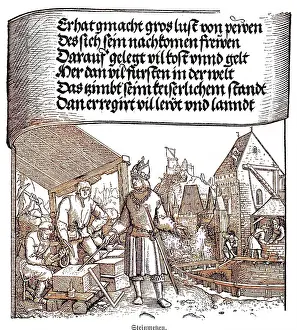 Er hat gmacht gros lust von pewen
Des sich sein nachkomen frewen
Darauf gelegt vil kost vnnd gelt
Mer dan vil fürsten in der welt
Das zimbt seim keiserlichem standt
Dan er regirt vil lewt vnd lanndt
Steinmetzen.